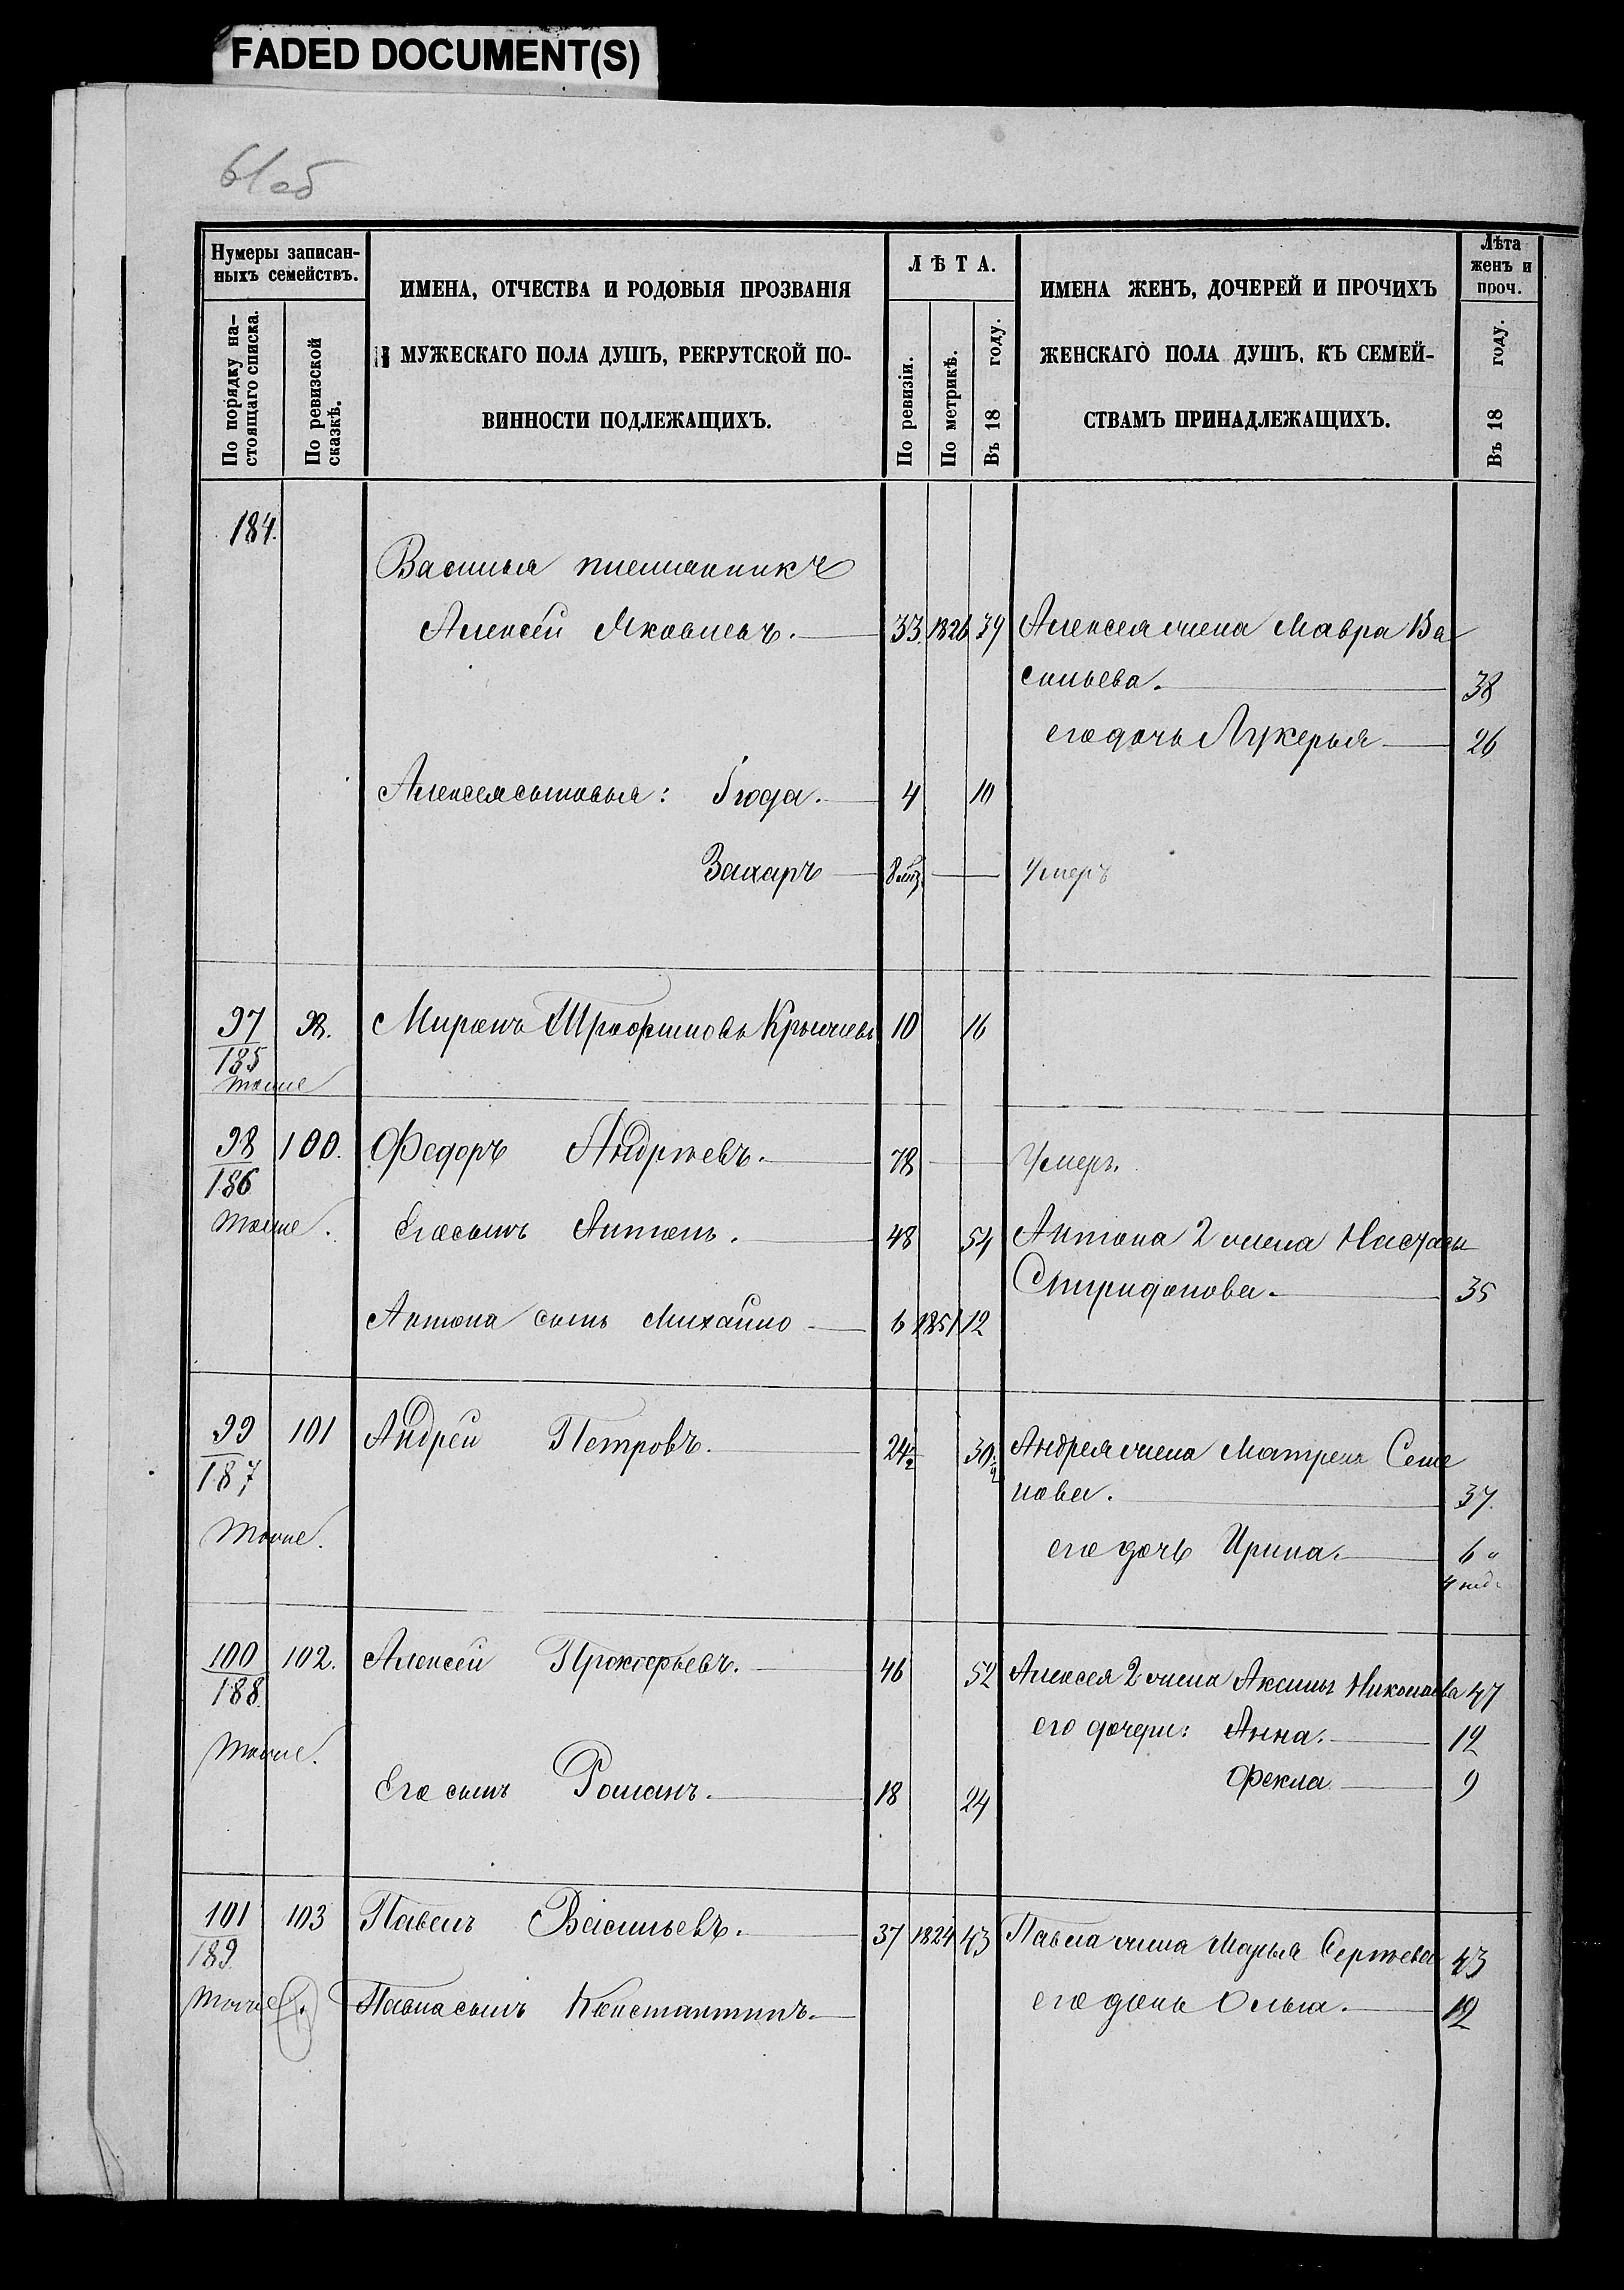 FADED DOCUMENT(S)
61 об
Нумеры записан-
ныхъ семействъ.
По порядку на-
стоящаго списка.
По ревизской
сказкѣ.
ИМЕНА, ОТЧЕСТВА И РОДОВЫЯ ПРОЗВАНІЯ
МУЖЕСКАГО ПОЛА ДУШЪ, РЕКРУТСКОЙ ПО-
ВИННОСТИ ПОДЛЕЖАЩИХЪ.
ЛѢТА.
По ревизіи.
По метрикѣ.
Въ 18 году.
ИМЕНА ЖЕНЪ, ДОЧЕРЕЙ И ПРОЧИХЪ
ЖЕНСКАГО ПОЛА ДУШЪ, КЪ СЕМЕЙ-
СТВАМЪ ПРИНАДЛЕЖАЩИХЪ.
Лѣта
женъ и
проч.
Въ 18 году.
184.
Василья племянникъ
Алексѣй Яковлевъ. 33. 1826 39 Алексея жена Мавра Ва
сильева. 38
его дочь Лукерья 26
Алексея сыновья: Іюда. 4 10
Захаръ 8 мѣ. Умеръ
97 98. Миронъ Крылевъ 10 16
185
тоже
98 100. Федоръ Андрѣевъ. 78 Умеръ.
186
тоже. Его сынъ Антонъ. 48 54 Антона 2 жена Настасья
Спиридонова. 35
Антона сынъ Михайло 6 1851 12
99 101 Андрей Петровъ. 24½ 30½ Андрея жена Матрена Семе
187 нова. 37.
тоже. его дочь Ирина. 6 "
4 нед.
100 102. Алексей Прокофьевъ. 46 52 Алексея 2 жена Аксинья Николаева 47
188.
тоже. его дочери: Анна. 12
Его сынъ Романъ. 18 24 Фекла 9
101 103 Павелъ Васильевъ. 37 1824 43 Павла жена Марья Сергѣева 43
189.
тоже Павла сынъ Константинъ. его дочь Ольга. 12